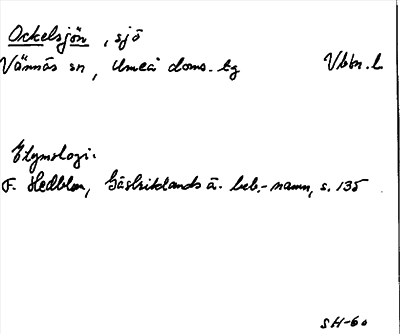 Ockelsjön, sjö
Vännäs sn, Umeå doms. tg Vbtn. l.
Etymologi:
F. Hedblom, Gästriklands ä. beb.-namn, s. 135
SH-60